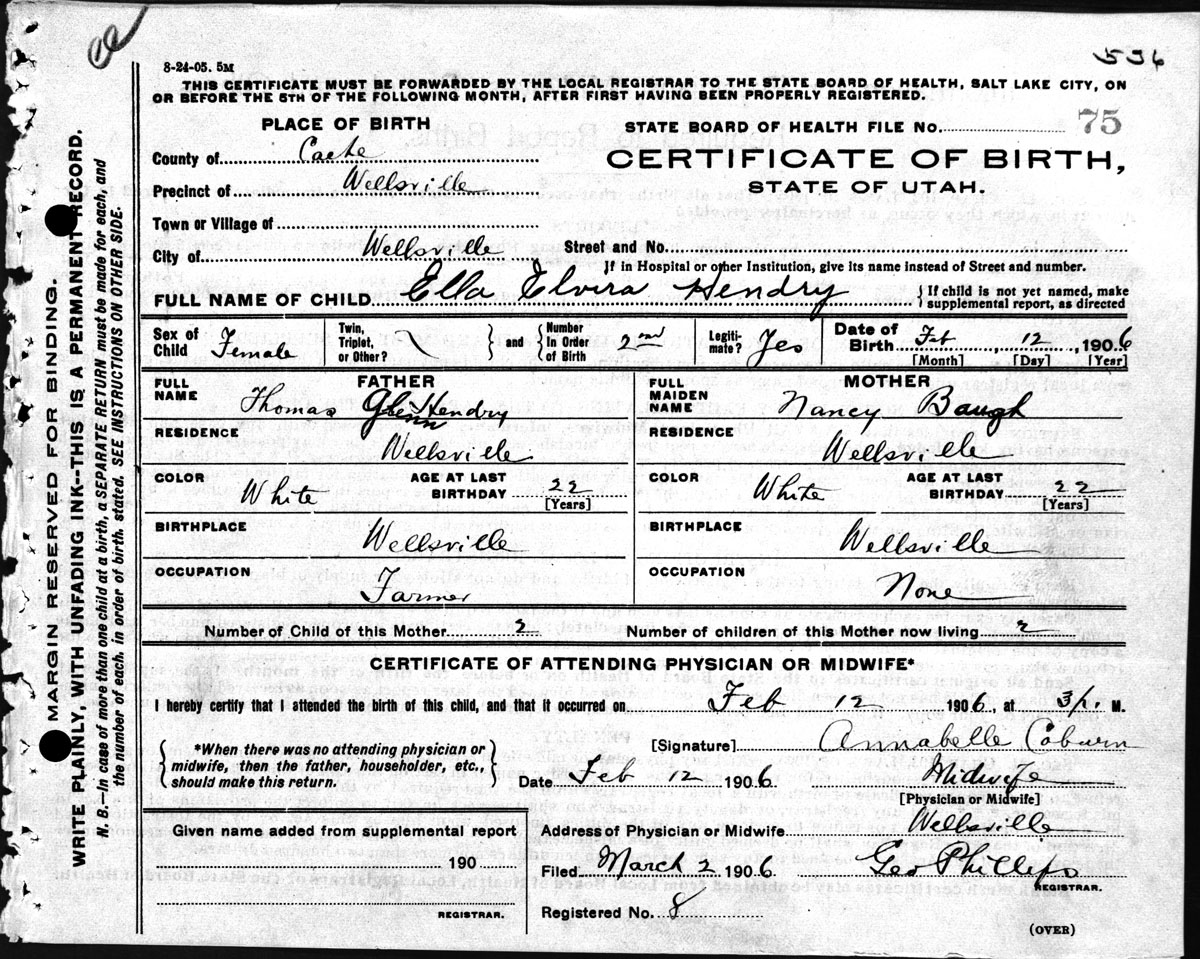 536
8-24-05. 5M
THIS CERTIFICATE MUST BE FORWARDED BY THE LOCAL REGISTRAR TO THE STATE BOARD OF HEALTH, SALT LAKE CITY, ON
OR BEFORE THE 5TH OF THE FOLLOWING MONTH, AFTER FIRST HAVING BEEN PROPERLY REGISTERED.
PLACE OF BIRTH
STATE BOARD OF HEALTH FILE NO. 75
County of Cache
CERTIFICATE OF BIRTH,
STATE OF UTAH.
Precinct of Wellsville
Town or Village of
City of Wellsville
Street and No.
If in Hospital or other Institution, give its name instead of Street and number.
FULL NAME OF CHILD Ella Elvira Hendry
{If child is not yet named, make
supplemental report, as directed
Sex of Child Female
Twin, Triplet, or Other?
} and {
Number In Order of Birth 2nd
Legiti-mate? Yes
Date of Birth Feb 12, 1906
[Month] [Day] [Year]
FATHER
FULL NAME Thomas Glenn Hendry
RESIDENCE
Wellsville
COLOR White
AGE AT LAST BIRTHDAY 22
[Years]
BIRTHPLACE
Wellsville
OCCUPATION
Farmer
MOTHER
FULL MAIDEN NAME Nancy Baugh
RESIDENCE
Wellsville
COLOR White
AGE AT LAST BIRTHDAY 22
[Years]
BIRTHPLACE
Wellsville
OCCUPATION
None
Number of Child of this Mother 2
Number of children of this Mother now living 2
CERTIFICATE OF ATTENDING PHYSICIAN OR MIDWIFE*
I hereby certify that I attended the birth of this child, and that it occurred on Feb 12 1906, at 3 P. M.
{*When there was no attending physician or
midwife, then the father, householder, etc.,
should make this return.}
[Signature] Annabelle Coburn
Date Feb 12 1906
Midwife
[Physician or Midwife]
Given name added from supplemental report
190
REGISTRAR.
Address of Physician or Midwife Wellsville
Filed March 2 1906
Geo Phillips
REGISTRAR.
Registered No. 8
(OVER)
MARGIN RESERVED FOR BINDING.
WRITE PLAINLY, WITH UNFADING INK--THIS IS A PERMANENT RECORD.
N. B.—In case of more than one child at a birth, a SEPARATE RETURN must be made for each, and
the number of each, in order of birth, stated. SEE INSTRUCTIONS ON OTHER SIDE.